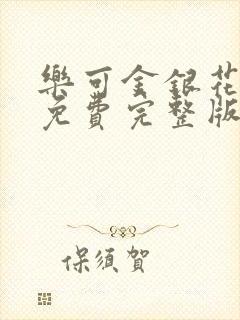 樂可金銀花
免費完整版
保須賀